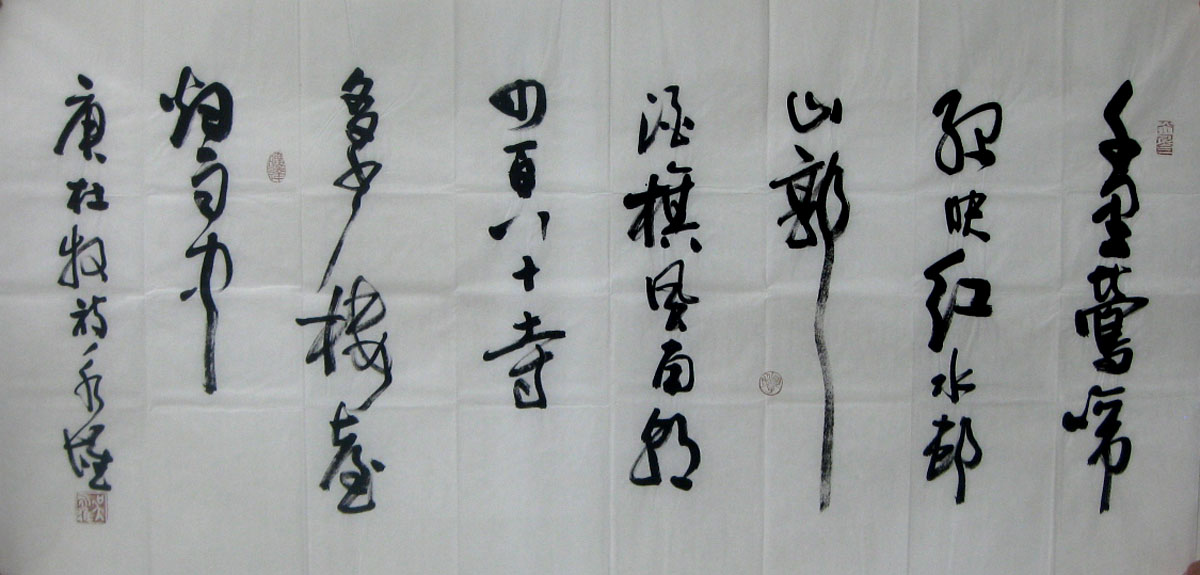 千里鶯啼
绿映红水邨
山郭
酒旗風南朝
四百八十寺
多少樓臺
烟雨中
唐杜牧诗永